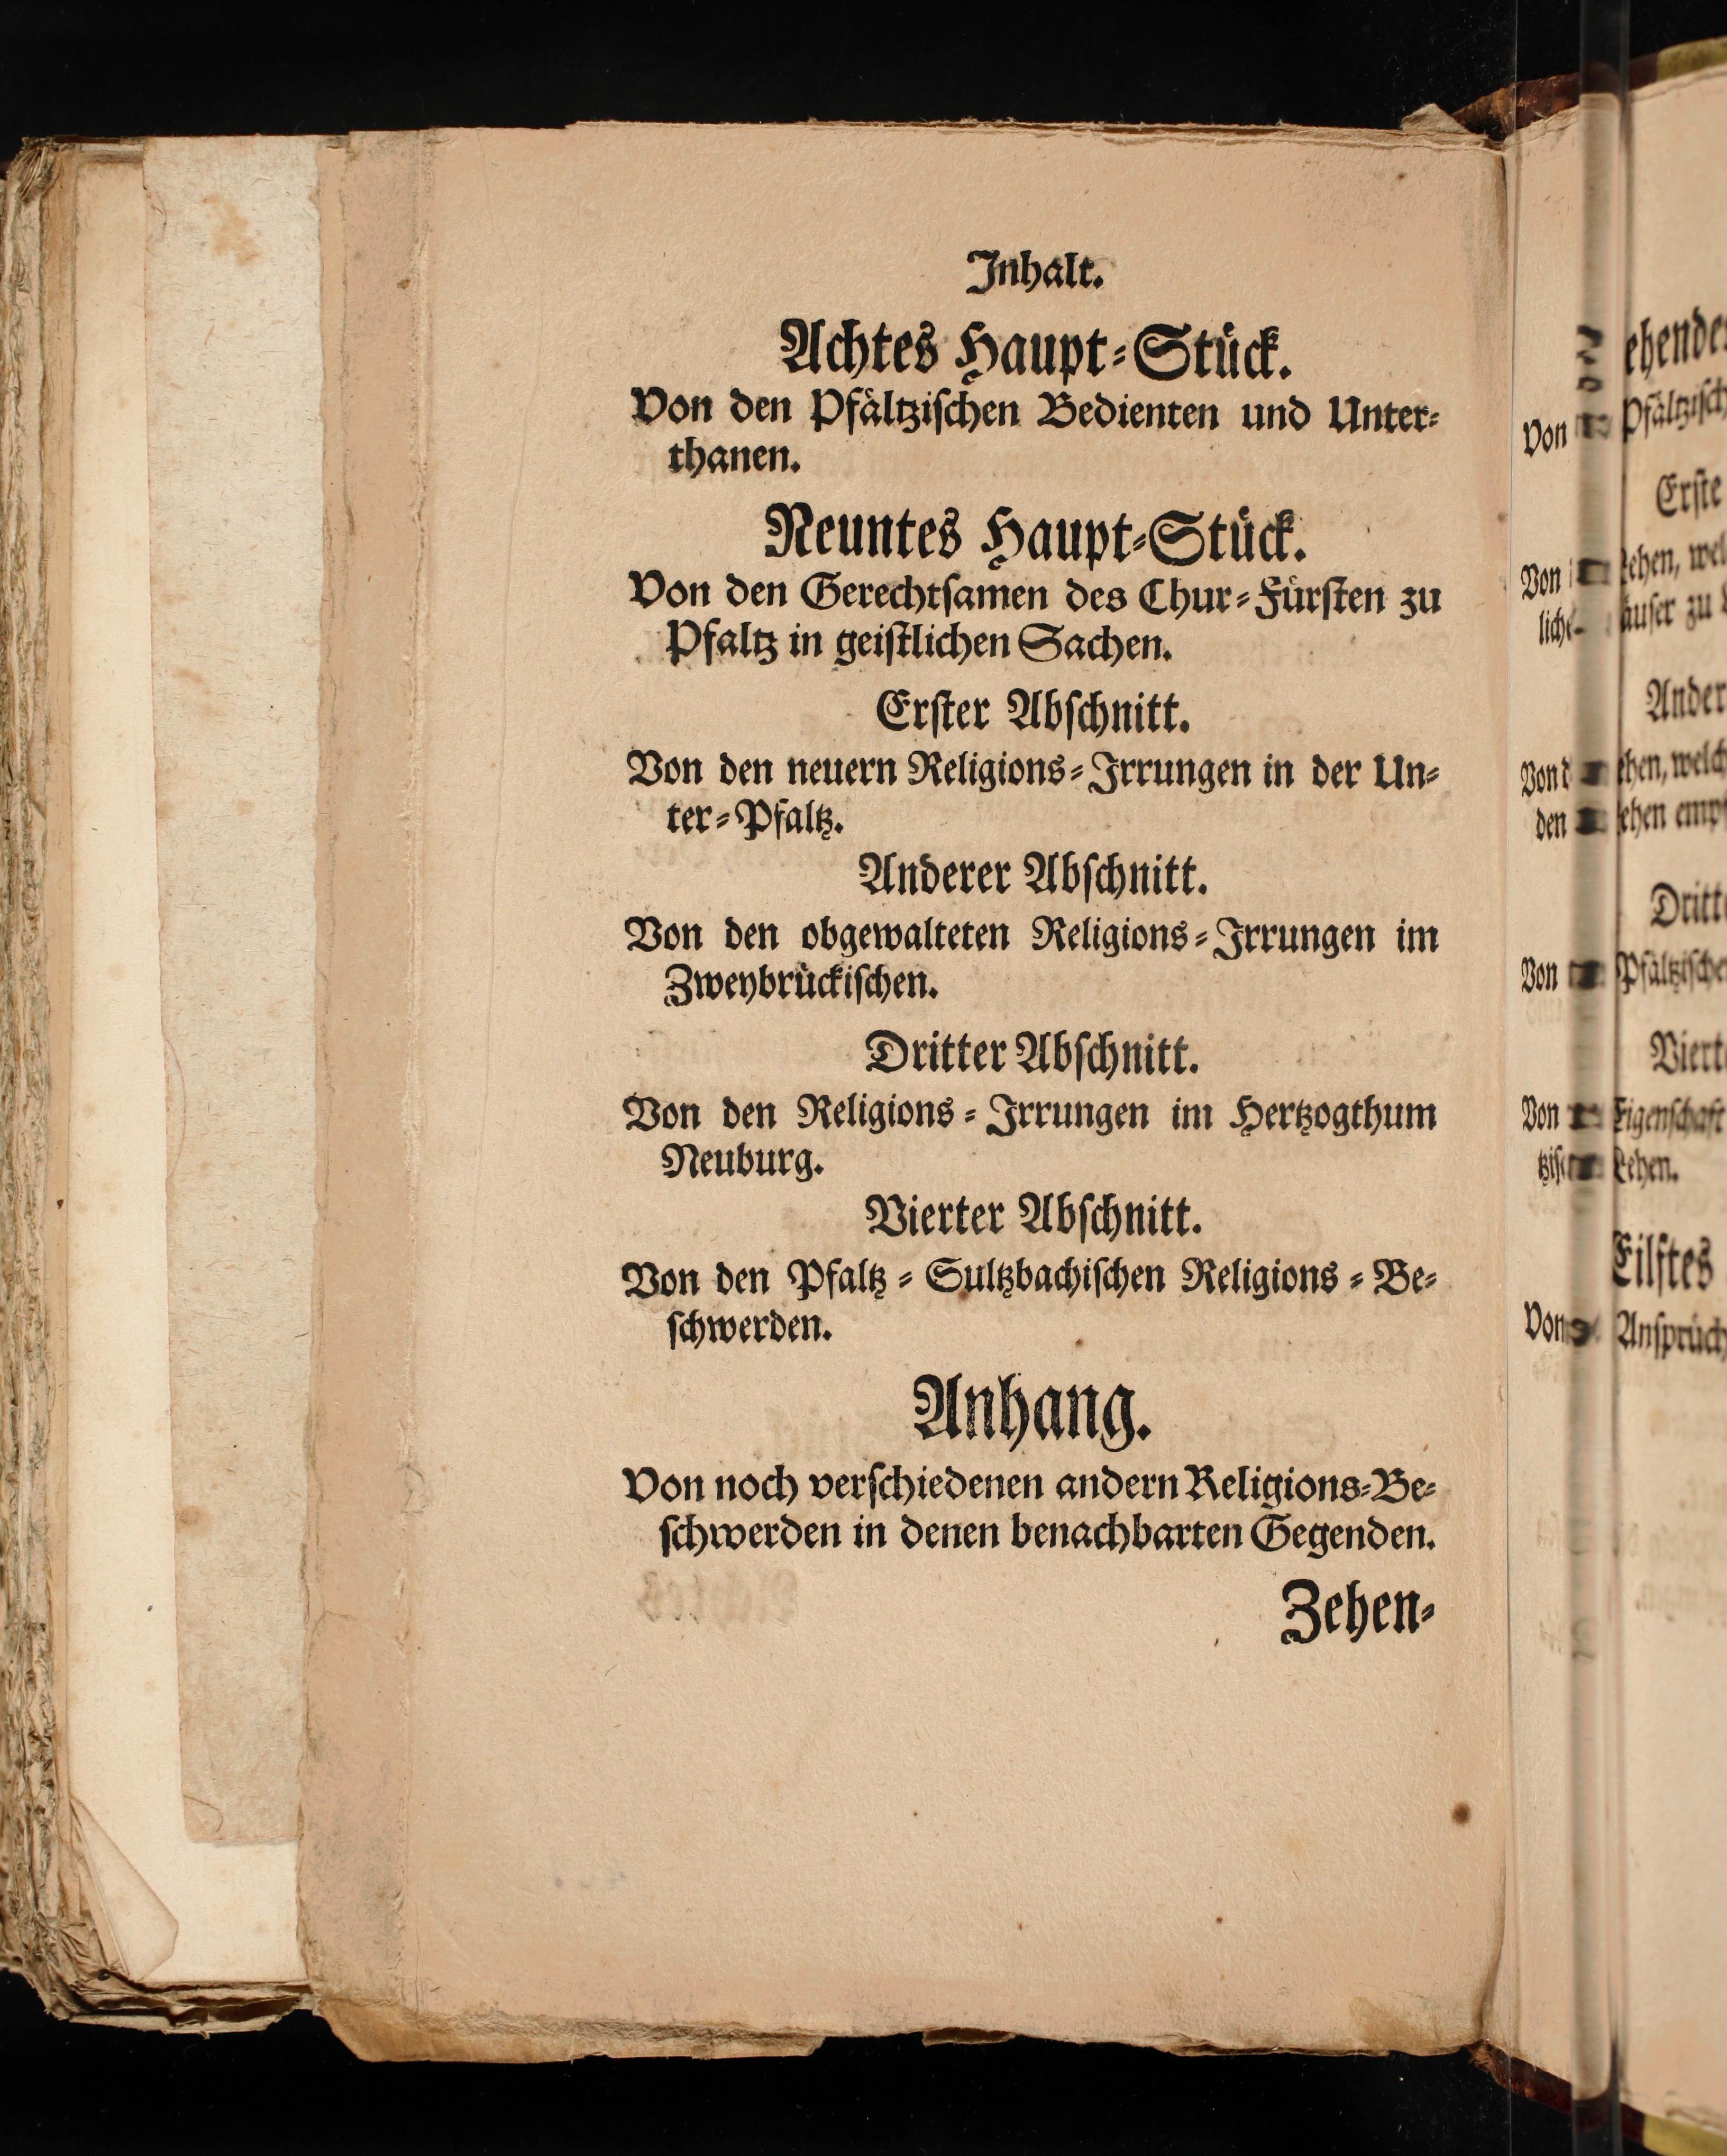 Inhalt.
Achtes Haupt-Stück.
Von den Pfältzischen Bedienten und Unter-
thanen.
Neuntes Haupt-Stück.
Von den Gerechtsamen des Chur-Fürsten zu
Pfaltz in geistlichen Sachen.
Erster Abschnitt.
Von den neuern Religions-Irrungen in der Un-
ter-Pfaltz.
Anderer Abschnitt.
Von den obgewalteten Religions-Irrungen im
Zweybrückischen.
Dritter Abschnitt.
Von den Religions-Irrungen im Hertzogthum
Neuburg.
Vierter Abschnitt.
Von den Pfaltz-Sultzbachischen Religions-Be-
schwerden.
Anhang.
Von noch verschiedenen andern Religions-Be-
schwerden in denen benachbarten Gegenden.
Zehen-
Von
Erste
Von
Ander
den
Von
Von
Lehen.
Eilftes
Von